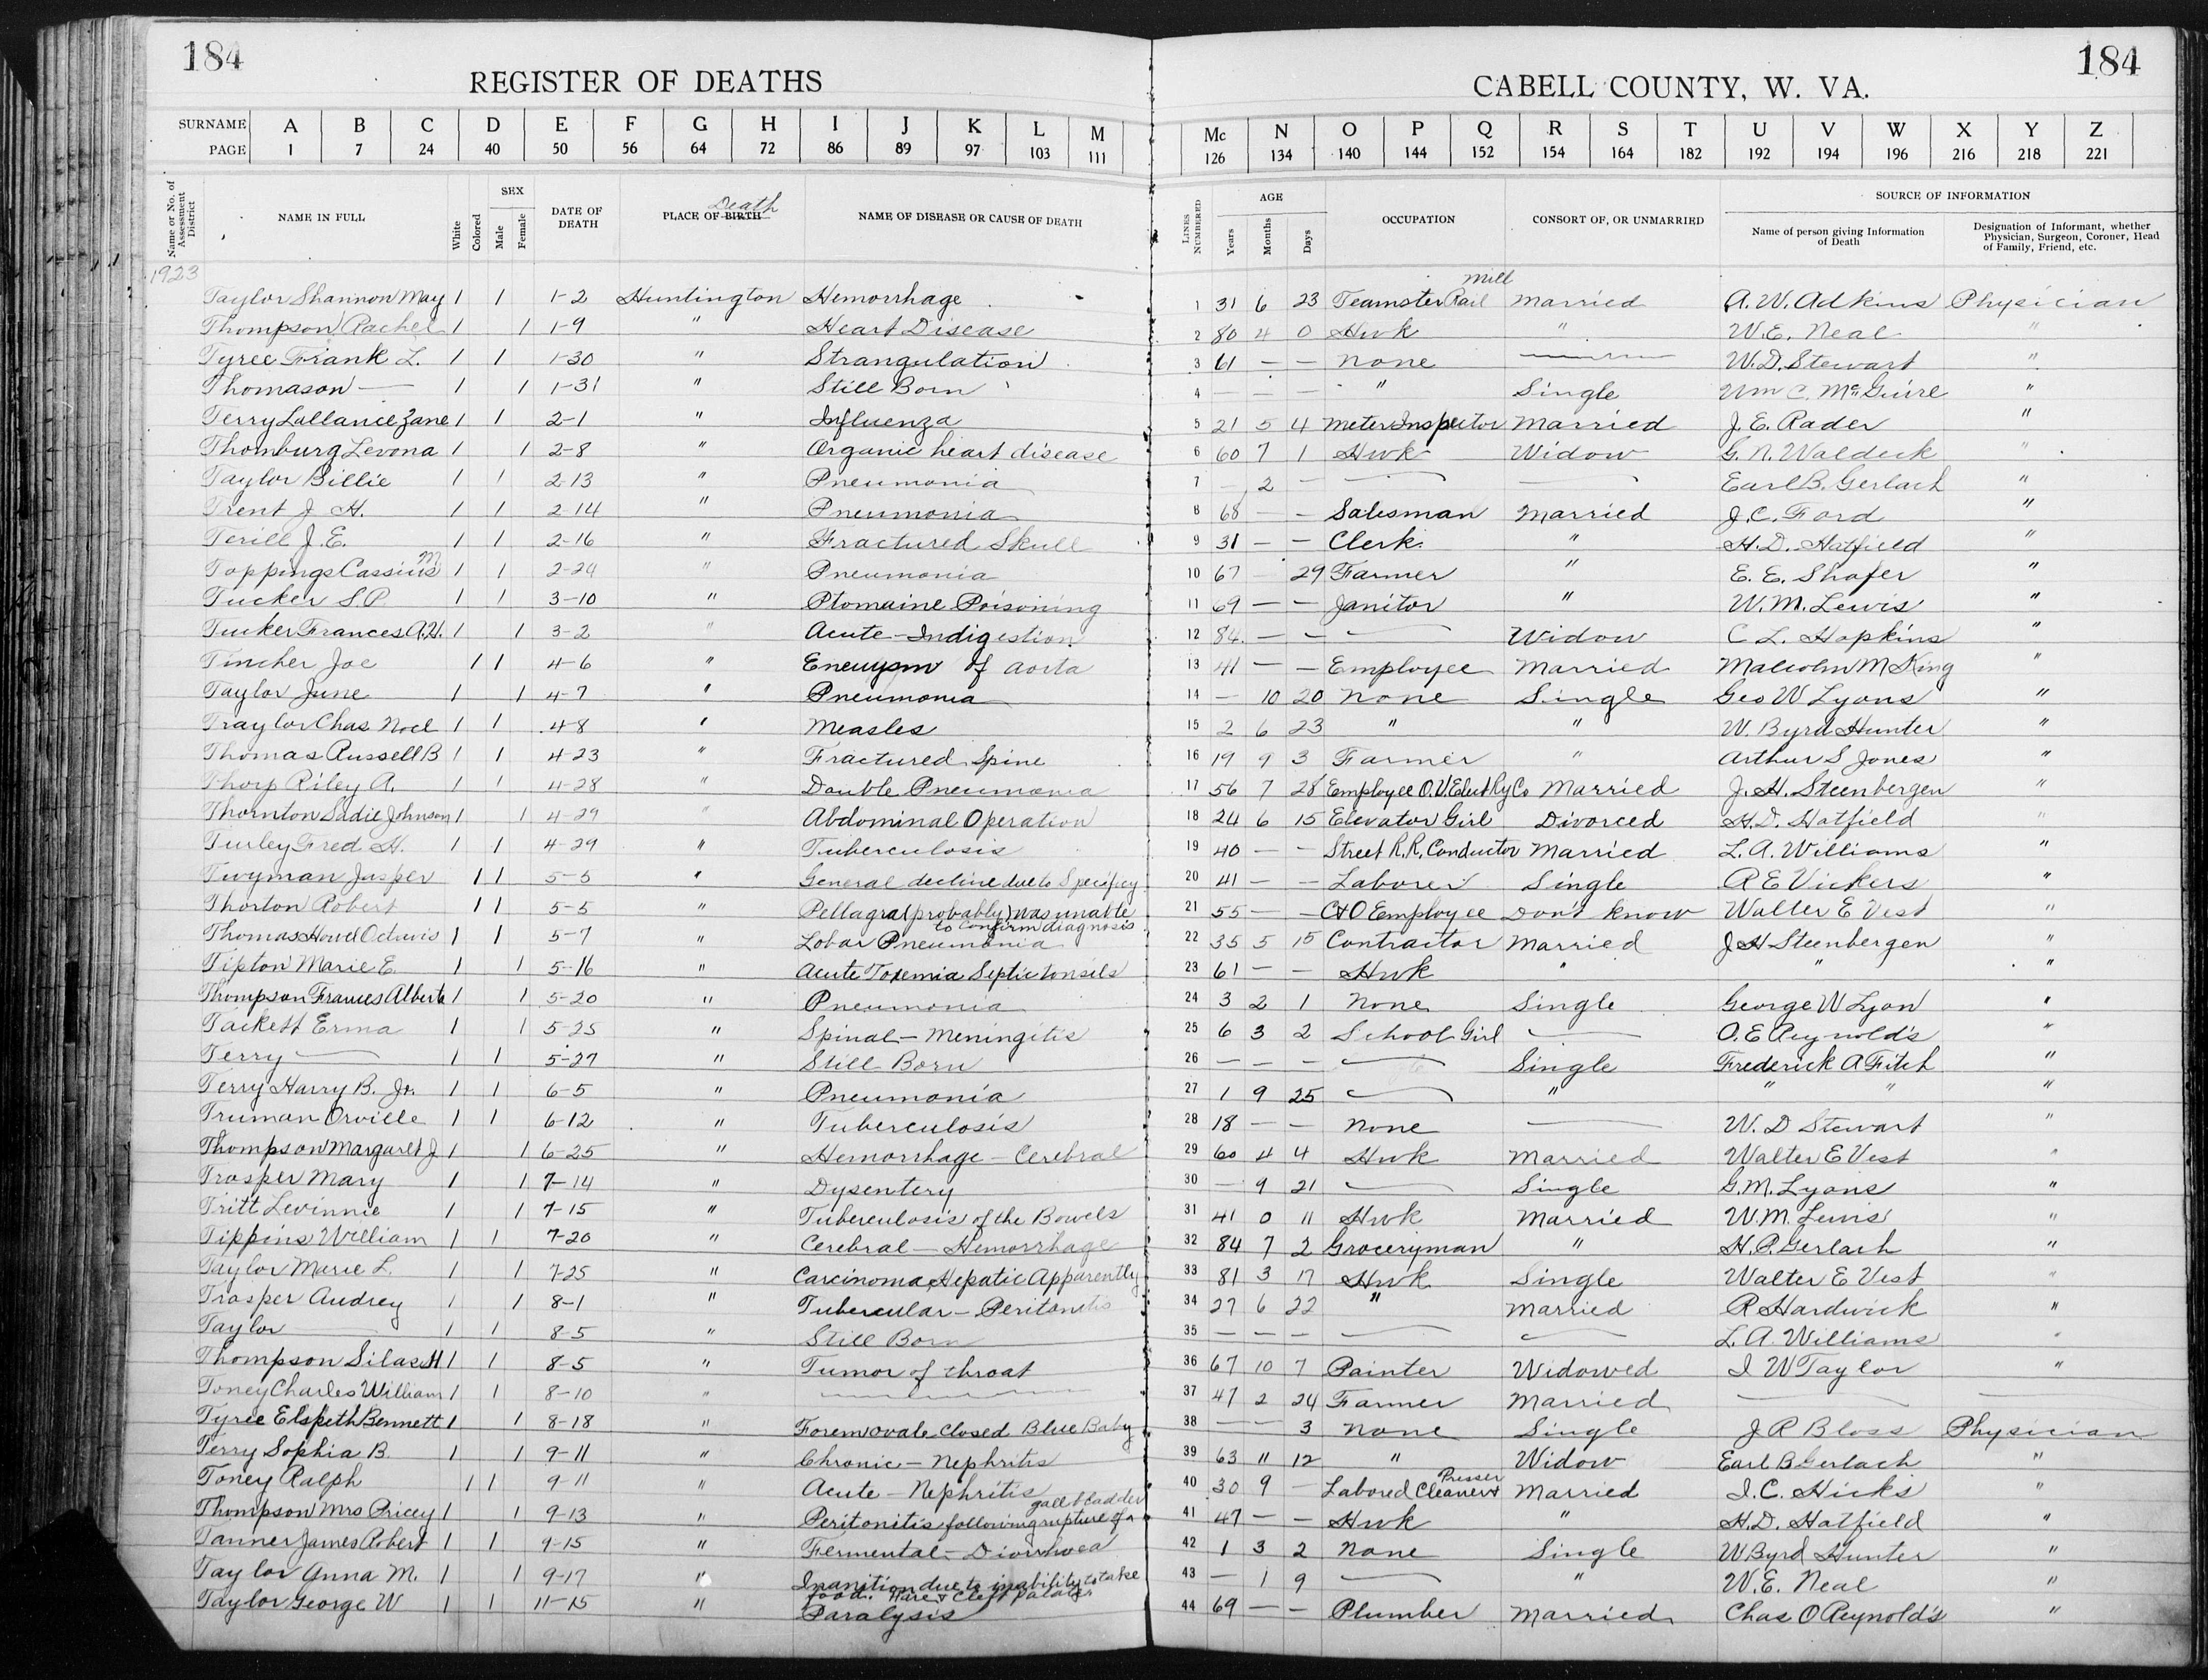 184
184
REGISTER OF DEATHS
CABELL COUNTY, W. VA.
SURNAME A B C D E F G H I J K L M Mc N O P Q R S T U V W X Y Z
PAGE 1 7 24 40 50 56 64 72 86 89 97 103 111 126 134 140 144 152 154 164 182 192 194 196 216 218 221
Name or No. of Assessment District
NAME IN FULL
White
Colored
SEX
Male
Female
DATE OF DEATH
PLACE OF BIRTH Death
NAME OF DISEASE OR CAUSE OF DEATH
LINES NUMBERED
AGE
Years
Months
Days
OCCUPATION
CONSORT OF, OR UNMARRIED
SOURCE OF INFORMATION
Name of person giving Information of Death
Designation of Informant, whether Physician, Surgeon, Coroner, Head of Family, Friend, etc.
1923
Taylor Shannon May 1 1 1-2 Huntington Hemorrhage 1 31 6 23 Teamster Rail Mill Married A. W. Adkins Physician
Thompson Rachel 1 1 1-9 " Heart Disease 2 80 4 0 Hwk " W. E. Neal "
Tyree Frank L. 1 1 1-30 " Strangulation 3 61 — — None — W. D. Stewart "
Thomason — 1 1 1-31 " Still Born 4 — — — " Single Wm C. McGuire "
Terry Lallance Zane 1 1 2-1 " Influenza 5 21 5 4 Meter Inspector Married J. E. Rader "
Thornburg Levona 1 1 2-8 " Organic heart disease 6 60 7 1 Hwk Widow G. N. Waldeck "
Taylor Billie 1 1 2-13 " Pneumonia 7 — 2 — — — Earl B. Gerlach "
Trent J. H. 1 1 2-14 " Pneumonia 8 68 — — Salesman Married J. C. Ford "
Terill J. E. 1 1 2-16 " Fractured Skull 9 31 — — Clerk " H. D. Hatfield "
Toppings Cassius M 1 1 2-24 " Pneumonia 10 67 29 Farmer " E. E. Shafer "
Tucker S. P. 1 1 3-10 " Ptomaine Poisoning 11 69 — — Janitor " W. M. Lewis "
Tucker Frances A. H. 1 1 3-2 " Acute - Indigestion 12 84 — — — Widow C L. Hopkins "
Tincher Joe 1 1 4-6 " Eneuysm of aorta 13 41 — — Employee Married Malcolm M King "
Taylor June 1 1 4-7 " Pneumonia 14 — 10 20 None Single Geo W Lyons "
Traylor Chas Noel 1 1 4-8 " Measles 15 2 6 23 " " W. Byrd Hunter "
Thomas Russell B 1 1 4-23 " Fractured Spine 16 19 9 3 Farmer " Arthur S Jones "
Thorp Riley A. 1 1 4-28 " Double Pneumonia 17 56 7 28 Employee O. V. Elect Ry Co Married J. H. Steenbergen "
Thornton Sadie Johnson 1 1 4-29 " Abdominal Operation 18 24 6 15 Elevator Girl Divorced H. D. Hatfield "
Turley Fred H. 1 1 4-29 " Tuberculosis 19 40 — — Street R. R. Conductor Married L. A. Williams "
Twyman Jasper 1 1 5-5 " General decline due to Specificy 20 41 — — Laborer Single R E Vickers "
Thorton Robert 1 1 5-5 " Pellagra (probably) was unable to confirm diagnosis 21 55 — — C+O Employee Don't know Walter E Vest "
Thomas Howel Octavis 1 1 5-7 " Lobar Pneumonia 22 35 5 15 Contractor Married J H Steenbergen "
Tipton Marie E. 1 1 5-16 " Acute Toxemia Septic tonsils 23 61 — — Hwk " " "
Thompson Frances Alberta 1 1 5-20 " Pneumonia 24 3 2 1 None Single George W Lyon "
Tackett Erma 1 1 5-25 " Spinal - Meningitis 25 6 3 2 School Girl — O. E Reynold's "
Terry — 1 1 5-27 " Still Born 26 — — — — Single Frederick A Fitch "
Terry Harry B. Jr. 1 1 6-5 " Pneumonia 27 1 9 25 — " " " "
Truman Orville 1 1 6-12 " Tuberculosis 28 18 — — None — W. D Stewart "
Thompson Margaret J 1 1 6-25 " Hemorrhage - Cerebral 29 60 4 4 Hwk Married Walter E Vest "
Trosper Mary 1 1 7-14 " Dysentery 30 — 9 21 — Single G. M. Lyons "
Tritt Levinnie 1 1 7-15 " Tuberculosis of the Bowels 31 41 0 11 Hwk Married W. M. Lewis "
Tippins William 1 1 7-20 " Cerebral - Hemorrhage 32 84 7 2 Groceryman " H. P. Gerlach "
Taylor Marie L. 1 1 7-25 " Carcinoma, Hepatic Apparently 33 81 3 17 Hwk Single Walter E Vest "
Trosper Audrey 1 1 8-1 " Tubercular - Peritonitis 34 27 6 22 " Married R Hardwick "
Taylor — 1 1 8-5 " Still Born 35 — — — — — L. A. Williams "
Thompson Silas H. 1 1 8-5 " Tumor of throat 36 67 10 7 Painter Widowed I W Taylor "
Toney Charles William 1 1 8-10 " — 37 47 2 24 Farmer Married — —
Tyree Elspeth Bennett 1 1 8-18 " Forem ovale closed Blue Baby 38 — — 3 None Single J R Bloss Physician
Terry Sophia B. 1 1 9-11 " Chronic - Nephritis 39 63 11 12 " Widow Earl B Gerlach "
Toney Ralph 1 1 9-11 " Acute - Nephritis 40 30 9 — Labored Cleaner + Presser Married I. C. Hicks "
Thompson Mrs Pricey 1 1 9-13 " Peritonitis following rupture of a gall bladder 41 47 — — Hwk " H. D. Hatfield "
Tanner James Robert 1 1 9-15 " Fermental - Diorrhoea 42 1 3 2 None Single W Byrd Hunter "
Taylor Anna M. 1 1 9-17 " Inanition due to inability to take food. Hare + Cleft palates 43 — 1 9 — " W. E. Neal "
Taylor George W 1 1 11-15 " Paralysis 44 69 — — Plumber Married Chas O Reynold's "